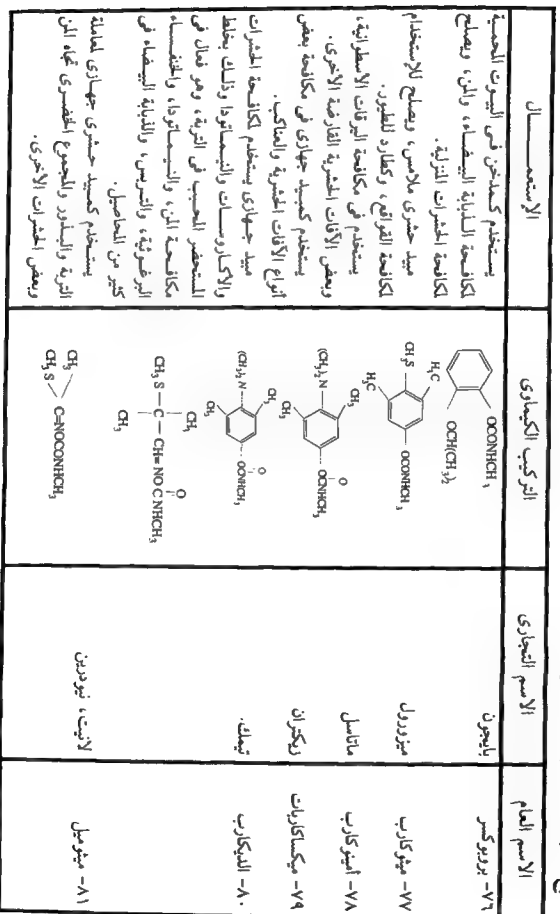 الاسم العام
الاسم التجارى
التركيب الكيماوى
الاستعمـــــال
٧٦- بروبوكسر
بايجون
OCONHCH3
OCH(CH3)2
يستخدم كمدخن فى البيوت المحمية
لمكافحة الذبابة البيضاء، والمن، ويصلح
لمكافحة الحشرات المنزلية.
٧٧- ميثوكارب
ميزورول
H3C
CH3S
H3C
OCONHCH3
مبيد حشرى ملامس، ويصلح للإستخدام
لمكافحة القواقع، وكطارد للطيور.
٧٨- أمينوكارب
ماتاسل
CH3
(CH3)2 N
OCNHCH3
O
يستخدم فى مكافحة اليرقات الاسطوانية،
وبعض الآفات الحشرية القارضة الأخرى.
٧٩- ميكساكاربات
زيكتران
CH3
(CH3)2 N
CH3
OCNHCH3
O
يستخدم كمبيد جهازى فى مكافحة بعض
أنواع الآفات الحشرية والعناكب.
٨٠- الديكارب
تيمك.
CH3
CH3S — C — CH=NO C NHCH3
O
CH3
مبيد جهازى يستخدم لمكافحة الحشرات
والاكاروسات والنيماتودا وذلك بخلط
المستحضر المحبب فى التربة، وهو فعال فى
مكافحة المن، والنيماتودا، والخنفساء
البرغوثية، والتربس، والذبابة البيضاء فى
كثير من المحاصيل.
٨١- ميثوميل
لانيت، نيودرين
CH3
CH3S
C=NOCONHCH3
يستخدم كمبيد حشرى جهازى لمعاملة
التربة والبذور والمجموع الخضرى تجاه المن
وبعض الحشرات الأخرى.